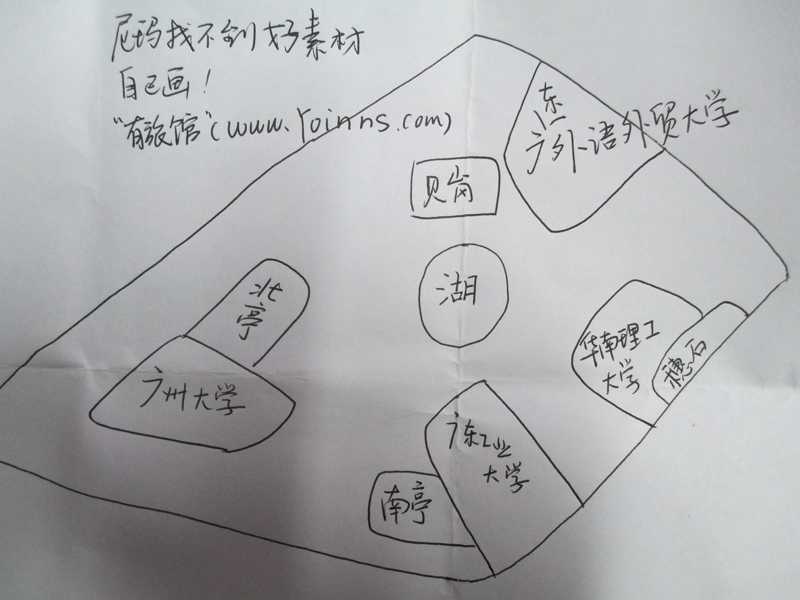 尼玛找不到好素材
自己画！
"有旅馆"(www.Yoinns.com)
广东外语外贸大学
贝岗
湖
北亭
广州大学
华南理工
大学
穗石
广东工业
大学
南亭